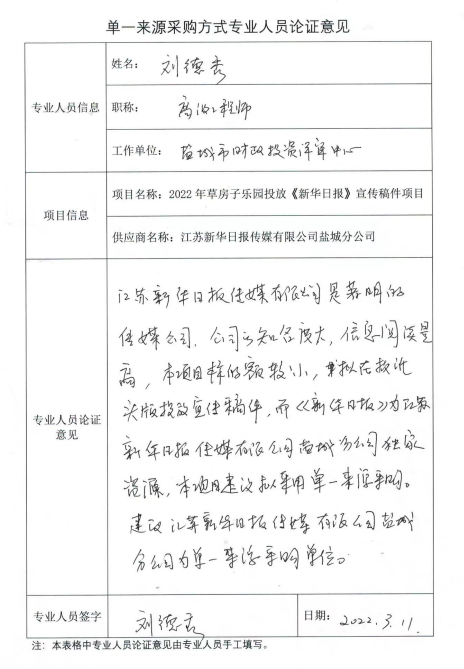 单一来源采购方式专业人员论证意见
专业人员信息
姓名：刘德秀
职称：高级工程师
工作单位：盐城市财政投资评审中心
项目信息
项目名称：2022年草房子乐园投放《新华日报》宣传稿件项目
供应商名称：江苏新华日报传媒有限公司盐城分公司
专业人员论证
意见
江苏新华日报传媒有限公司是著名的
传媒公司，公司知名度大，信息阅读量
高，本项目标的额较小，拟在
头版投放宣传稿件，而《新华日报》为江苏
新华日报传媒有限公司盐城分公司独家
资源，本项目建议拟采用单一来源采购。
建议江苏新华日报传媒有限公司盐城
分公司为单一来源采购单位。
专业人员签字
刘德秀
日期：2022.3.11.
注：本表格中专业人员论证意见由专业人员手工填写。